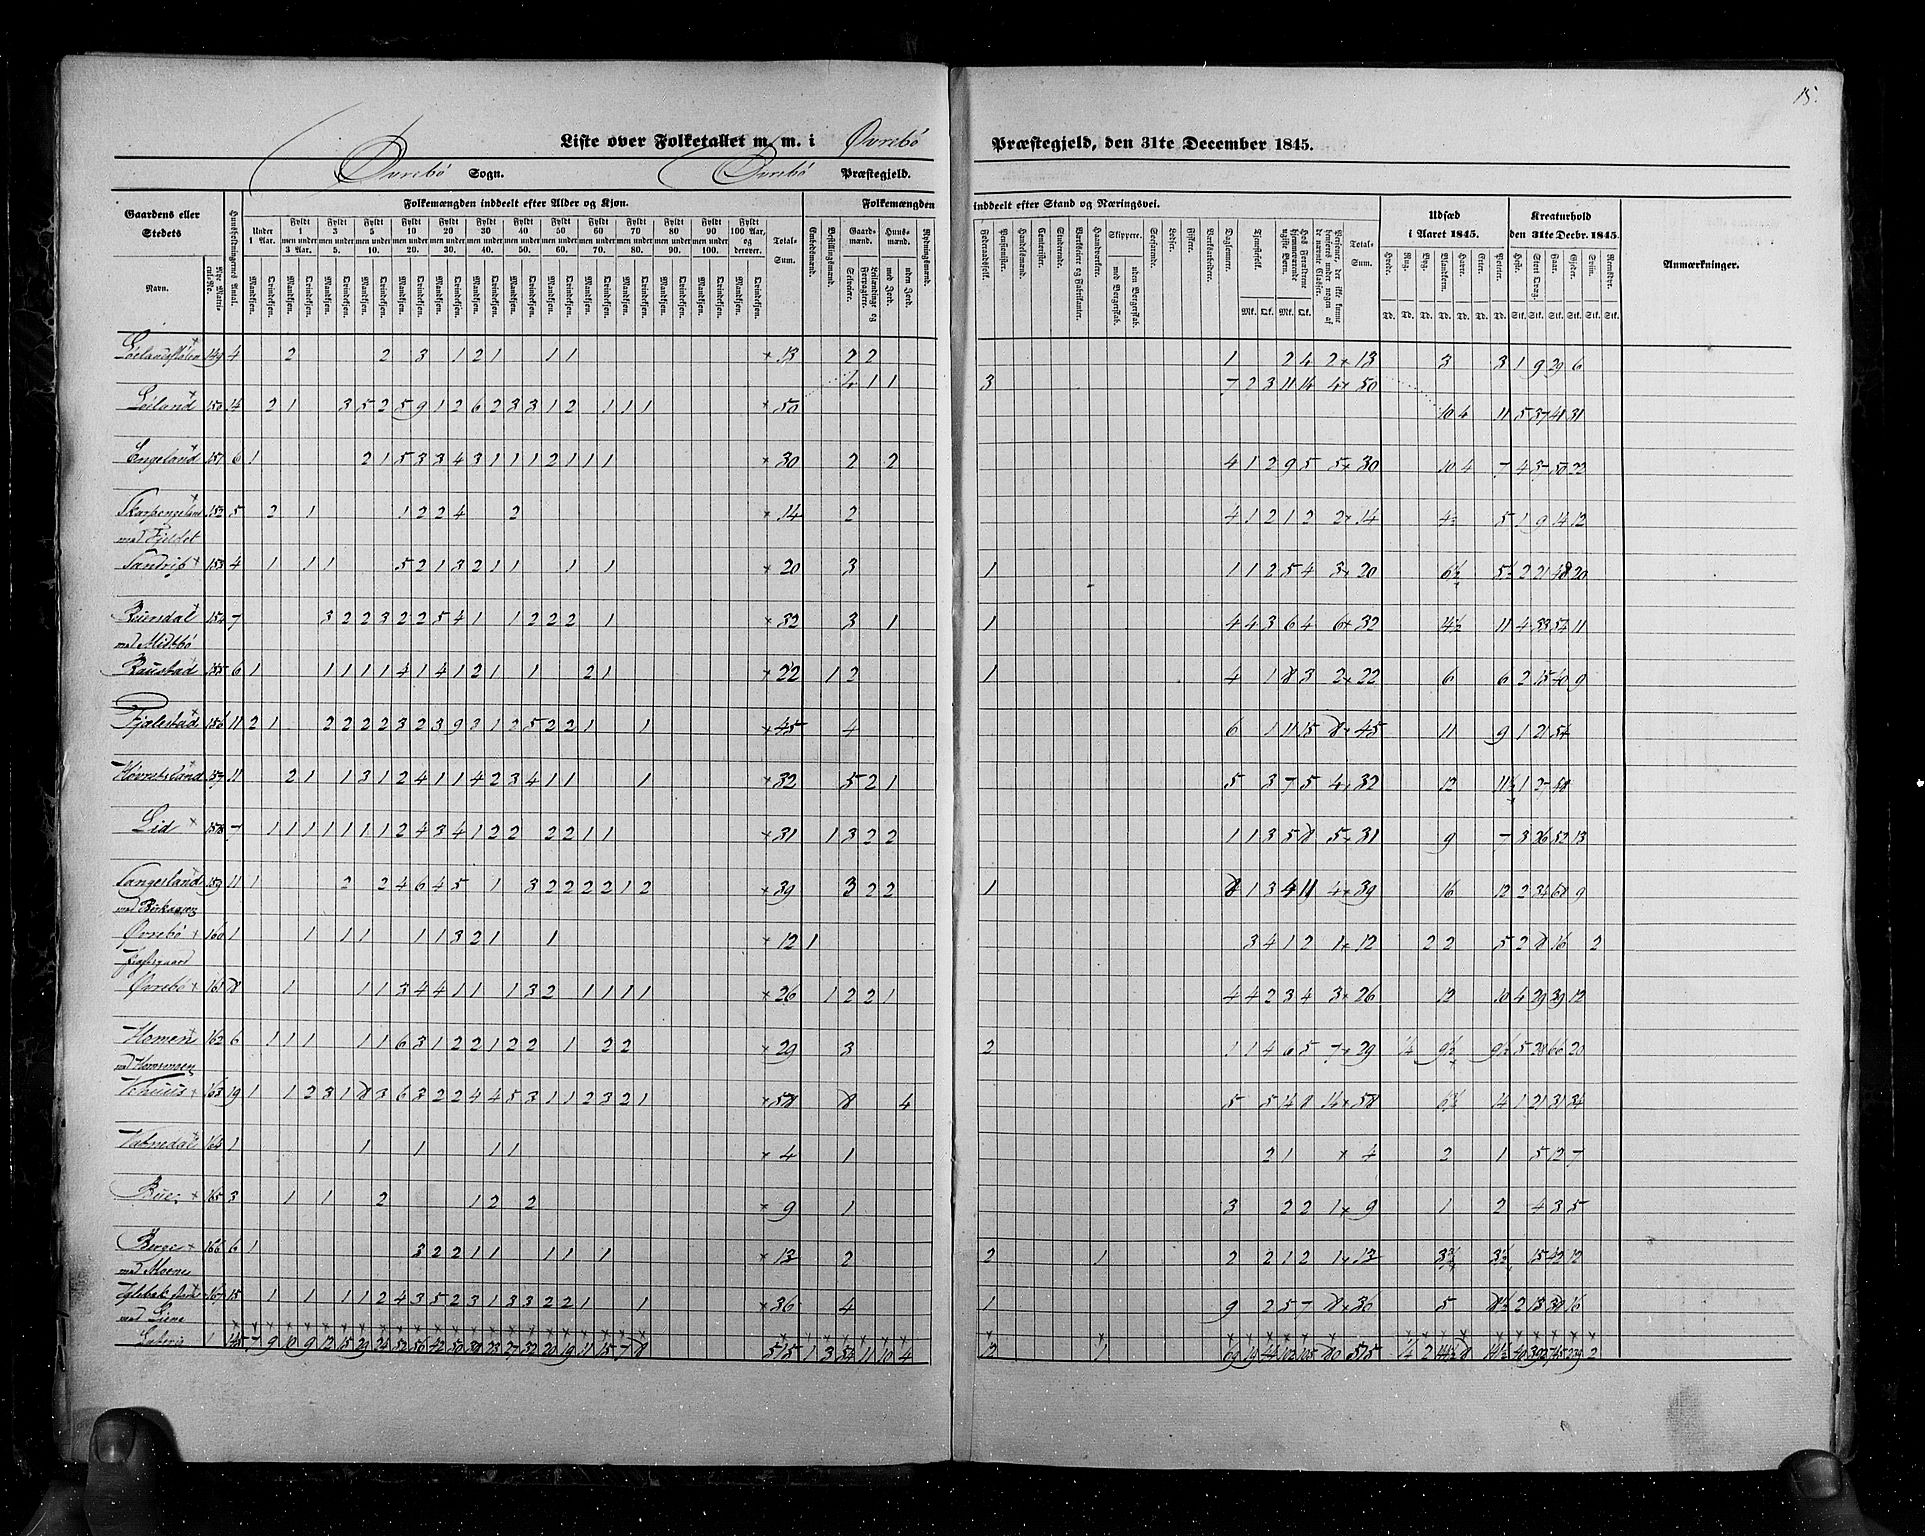 15.
Liste over Folketallet m. m. i Øvrebö Præstegjeld, den 31te December 1845.
Øvrebö Sogn. Øvrebö Præstegjeld.
Gaardens eller Stedets Navn.
Nyt Matricul No.
Huusholdningernes Antal.
Folkemængden inddeelt efter Alder og Kjøn.
Under 1 Aar.
Fyldt 1 men under 3 Aar.
Fyldt 3 men under 5.
Fyldt 5 men under 10.
Fyldt 10 men under 20.
Fyldt 20 men under 30.
Fyldt 30 men under 40.
Fyldt 40 men under 50.
Fyldt 50 men under 60.
Fyldt 60 men under 70.
Fyldt 70 men under 80.
Fyldt 80 men under 90.
Fyldt 90 men under 100.
Fyldt 100 Aar, og derover.
Mandkjøn. Qvindekjøn.
Total-Sum.
Folkemængden inddeelt efter Stand og Næringsvei.
Embedsmænd.
Bestillingsmænd.
Gaardmænd.
Selveiere.
Leilændinge og Forpagtere.
Huusmænd.
med Jord.
uden Jord.
Rydningsmænd.
Føderaadsfolk.
Pensionister.
Handelsmænd.
Contorister.
Studerende.
Værkseiere og Fabrikanter.
Haandværkere.
Skippere.
med Borgerskab.
uden Borgerskab.
Søefarende.
Lodser.
Fiskere.
Værksarbeidere.
Daglønnere.
Tjenestefolk.
Hos Forældrene hjemmeværende ugifte Børn.
Mk. Qk. Mk. Qk.
Personer, der ikke kunne henføres under nogen af de nævnte Classer.
Total-Sum.
Udsæd i Aaret 1845.
Hvede. Rug. Byg. Blandkorn. Havre. Erter. Poteter.
Kreaturhold den 31te Decbr. 1845.
Heste. Stort Qvæg. Faar. Gjeder. Sviin. Rensdyr.
Anmærkninger.
149 4 2 2 3 1 2 1 1 1 × 13 2 2 1 2 4 2 × 13 3 3 1 9 29 6
Löiland 150 14 2 1 3 5 2 5 9 1 2 6 2 3 3 1 2 1 1 1 × 50 4 1 1 3 7 2 3 11 14 4 × 50 10 4 11 5 37 48 31
Engeland 151 6 1 2 1 5 3 3 4 3 1 1 1 2 1 1 1 × 30 2 2 4 1 2 9 5 5 × 30 10 4 7 4 37 50 22
152 5 2 1 1 2 2 4 2 × 14 2 4 1 2 1 2 2 × 14 4½ 5 1 9 14 12
med Fjeldet
153 4 1 1 1 5 2 1 3 2 1 1 1 1 × 20 3 1 1 1 2 5 4 3 × 20 6½ 5½ 2 21 48 20
154 7 3 2 2 3 2 2 5 4 1 1 2 2 2 1 × 32 3 1 1 4 4 3 6 4 6 × 32 4½ 11 4 33 54 11
med Midtbö
Raustad 155 6 1 1 1 1 1 4 1 4 1 2 1 1 2 1 × 22 1 2 1 4 1 8 3 2 × 22 6 6 2 15 40 9
Fjalestad 156 11 2 1 2 2 2 2 3 2 3 9 3 1 2 5 2 2 1 1 × 45 4 6 1 11 15 8 × 45 11 9 1 21 54
157 11 2 1 1 3 1 2 4 1 1 4 2 3 4 1 1 1 × 32 5 2 1 5 3 7 5 4 × 32 12 11½ 1 27 48
Lid × 158 7 1 1 1 1 1 1 1 2 4 3 4 1 2 2 2 2 1 1 × 31 1 3 2 2 1 1 3 5 8 5 × 31 9 7 3 26 52 13
159 11 1 2 2 4 6 4 5 1 3 2 2 2 2 1 2 × 39 3 2 2 1 8 1 3 4 11 4 × 39 16 12 2 34 68 9
Øvrebö × 160 1 1 1 1 1 1 3 2 1 1 × 12 1 3 4 1 2 1 × 12 2 2 5 2 8 16 2
Øvrebö × 161 8 1 1 1 3 4 4 1 1 1 3 2 1 1 1 1 × 26 1 2 2 1 4 4 2 3 4 3 × 26 12 10 4 29 39 12
Homen 162 6 1 1 1 1 1 6 3 1 2 2 1 2 2 1 2 2 × 29 3 2 1 1 4 6 5 7 × 29 ¼ 9½ 9½ 5 28 66 20
163 19 1 1 2 3 1 8 3 6 3 2 2 4 4 5 3 1 1 2 3 2 1 × 58 8 4 5 5 14 8 14 × 58 6½ 14 1 21 31 34
Vatnedal 164 1 1 1 1 1 × 4 1 2 1 × 4 2 1 5 12 7
165 3 1 1 2 1 2 2 × 9 1 3 2 2 1 × 9 1 2 4 3 5
166 6 1 3 2 2 1 1 1 1 1 × 13 2 2 1 2 2 1 2 1 × 13 3¾ 3½ 15 42 12
med Moene
167 15 1 1 1 1 2 4 3 5 2 3 1 3 3 2 2 1 1 × 36 4 1 9 2 5 7 8 × 36 5 8½ 2 13 38 16
med Liene
Lateris 1 145 7 9 10 9 12 15 29 24 52 56 42 50 39 23 27 32 20 19 11 15 7 8 515 1 3 54 11 10 4 12 1 69 19 44 102 105 80 515 ¼ 2 8